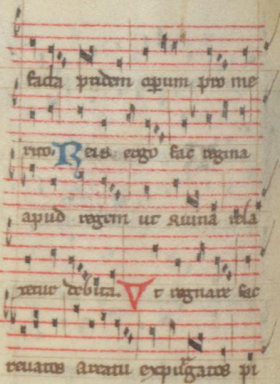 facta pridem operum pro me
rito. Reis ergo fac regina
apud regem ut ruina rela
xetur debita. Et regnare fac
reuatos a reatu expurgatos pi